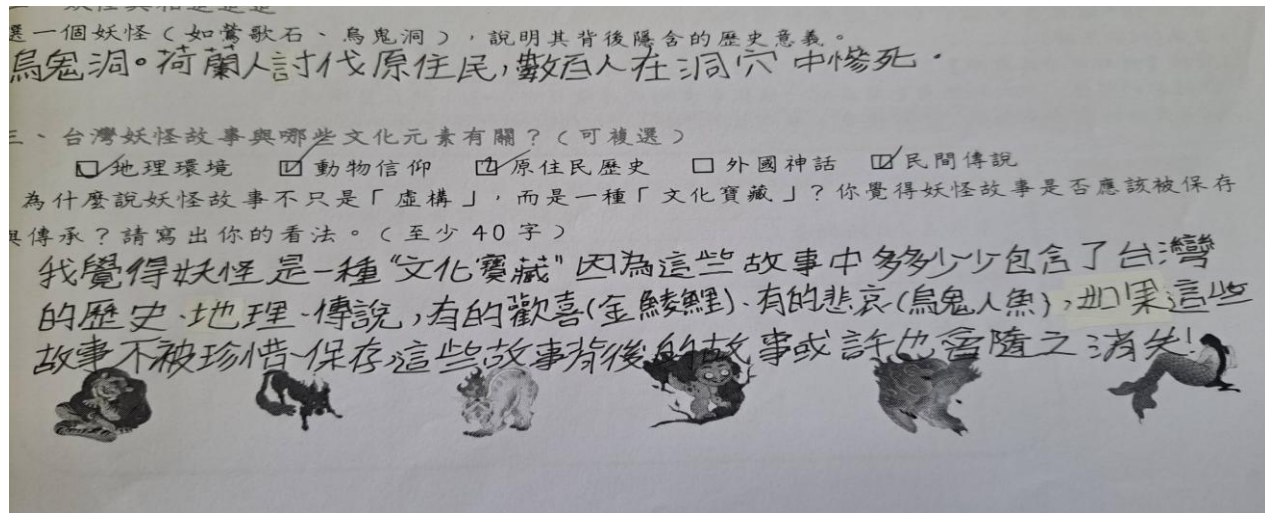 選一個妖怪(如鶯歌石、烏鬼洞),說明其背後隱含的歷史意義。
烏鬼洞。荷蘭人討伐原住民,數百人在洞穴中慘死.
三、台灣妖怪故事與哪些文化元素有關?(可複選)
☑地理環境 ☑動物信仰 ☑原住民歷史 □外國神話 ☑民間傳說
為什麼說妖怪故事不只是「虛構」,而是一種「文化寶藏」?你覺得妖怪故事是否應該被保存
與傳承?請寫出你的看法。(至少40字)
我覺得妖怪是一種"文化寶藏"因為這些故事中多多少少包含了台灣
的歷史、地理、傳說,有的歡喜(金鯪鯉)、有的悲哀(烏鬼人魚),如果這些
故事不被珍惜、保存,這些故事背後的故事或許也會隨之消失!